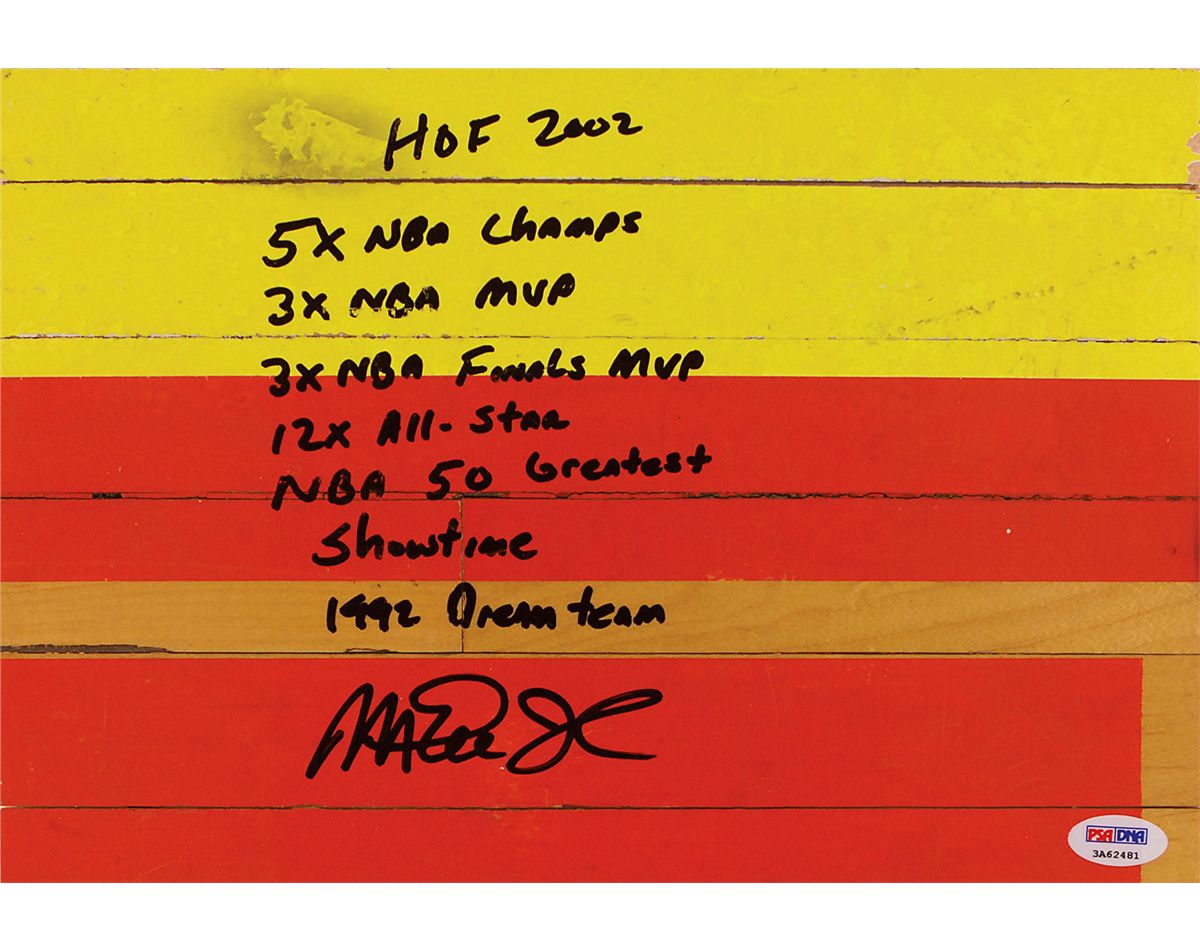 HOF 2002
5X NBA Champs
3X NBA MVP
3X NBA Finals MVP
12X All-Star
NBA 50 Greatest
Showtime
1992 Dream team
Magic J
PSA DNA
3A62481